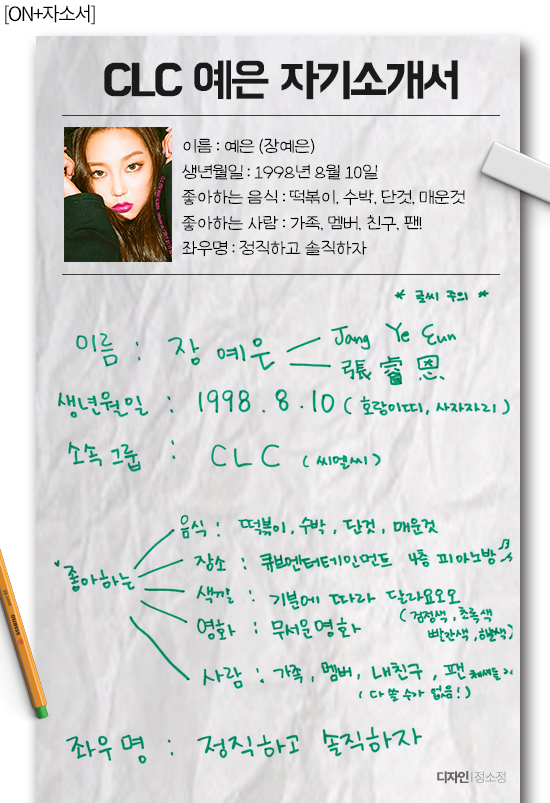 [ON+자소서]
CLC 예은 자기소개서
이름 : 예은 (장예은)
생년월일 : 1998년 8월 10일
좋아하는 음식 : 떡볶이, 수박, 단것, 매운것
좋아하는 사람 : 가족, 멤버, 친구, 팬!
좌우명 : 정직하고 솔직하자
* 글씨 주의 *
이름 : 장 예은
Jang Ye Eun
張睿恩
생년월일 : 1998. 8. 10 ( 호랑이띠, 사자자리 )
소속그룹 : CLC ( 씨엘씨 )
좋아하는
음식 : 떡볶이, 수박, 단것, 매운것
장소 : 큐브엔터테인먼트 4층 피아노방
색깔 : 기분에 따라 달라요오오
( 검정색, 초록색
빨간색, 하늘색)
영화 : 무서운영화
사람 : 가족, 멤버, 내친구, 팬
( 다 쓸 수가 없음! )
좌우명 : 정직하고 솔직하자
디자인|정소정